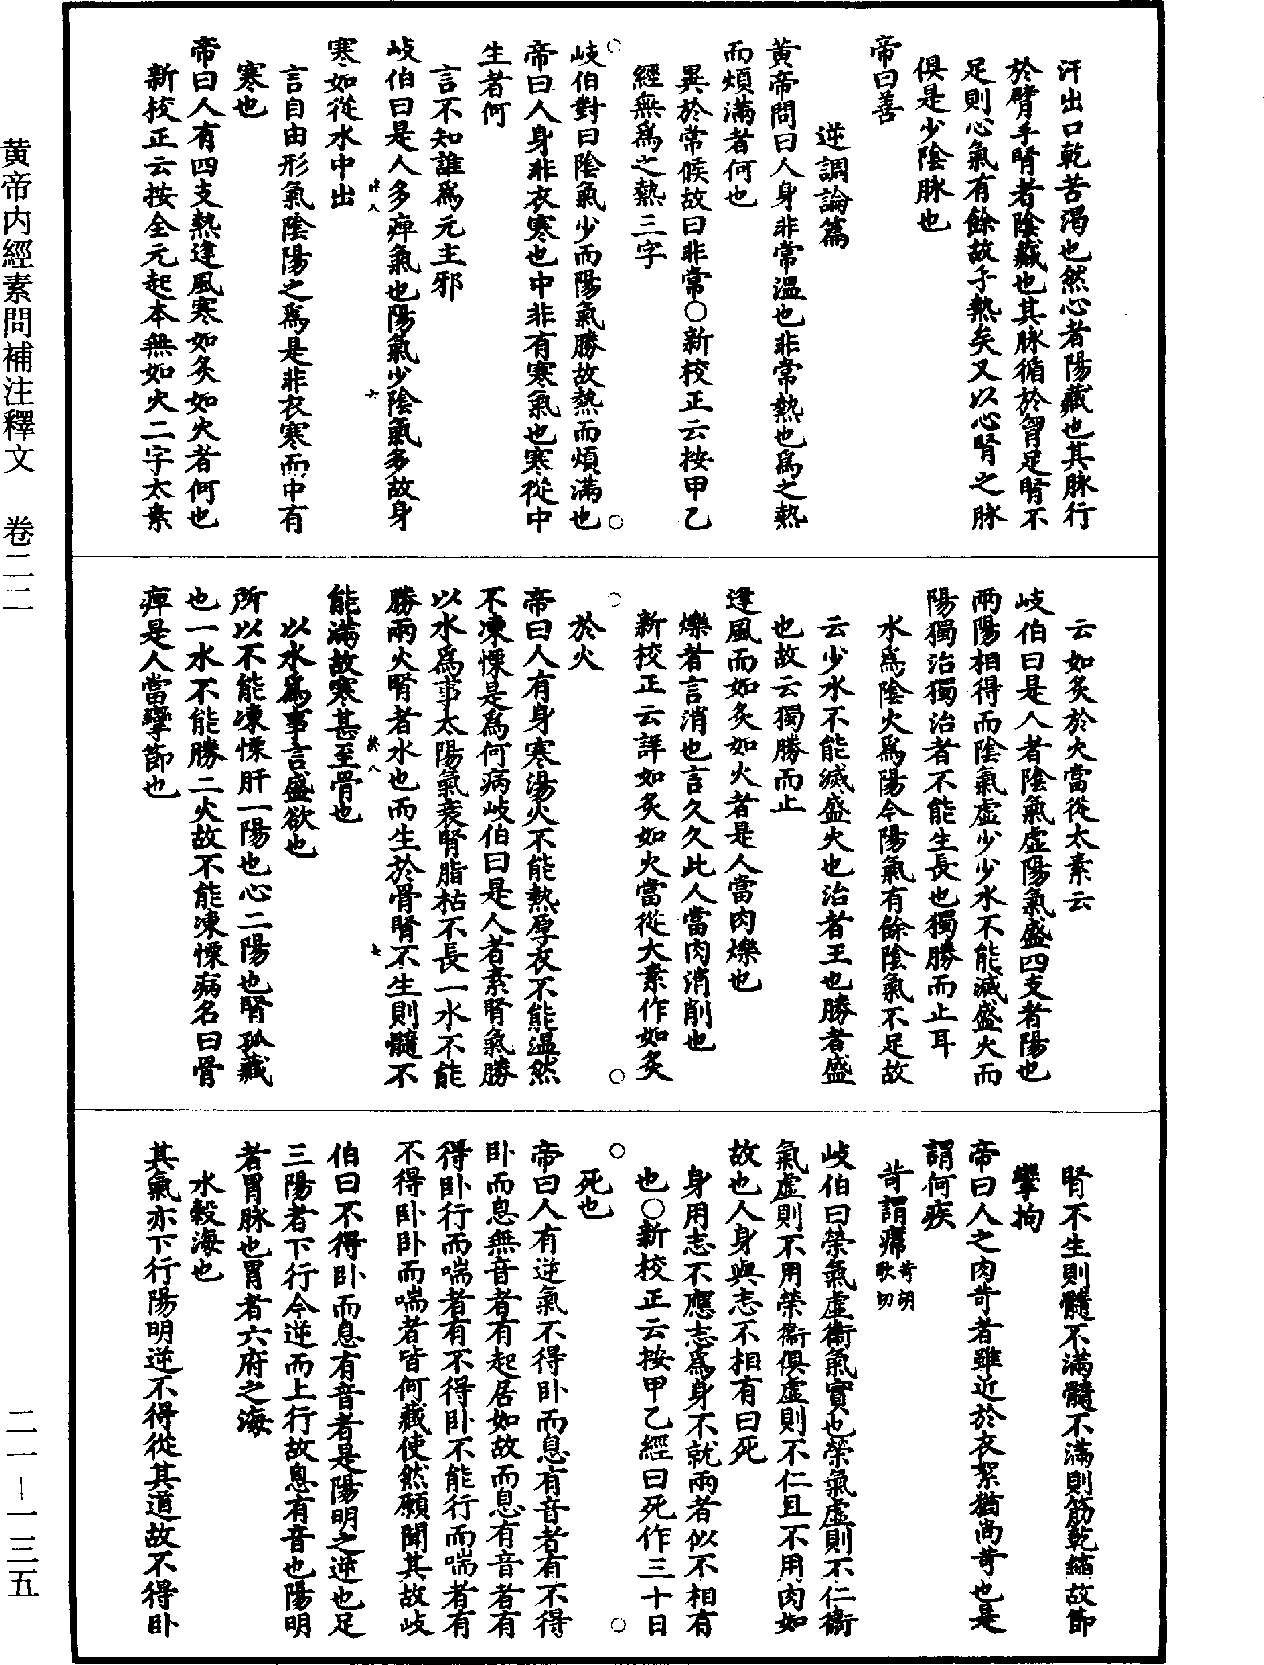 汗出口乾苦渴也然心者陽藏也其脉行
於臂手腎者陰藏也其脉循於胷足腎不
足則心氣有餘故手熱矣又以心腎之脉
俱是少陰脉也
帝曰善
逆調論篇
黄帝問曰人身非常温也非常熱也爲之熱
而煩滿者何也
異於常候故曰非常○新校正云按甲乙
經無爲之熱三字
岐伯對曰陰氣少而陽氣勝故熱而煩滿也
帝曰人身非衣寒也中非有寒氣也寒從中
生者何
言不知誰爲元主邪
岐伯曰是人多痺氣也陽氣少陰氣多故身
寒如從水中出
言自由形氣陰陽之爲是非衣寒而中有
寒也
帝曰人有四支熱逢風寒如炙如火者何也
新校正云按全元起本無如火二字太素
云如炙於火當從太素云
岐伯曰是人者陰氣虚陽氣盛四支者陽也
兩陽相得而陰氣虚少少水不能滅盛火而
陽獨治獨治者不能生長也獨勝而止耳
水爲陰火爲陽今陽氣有餘陰氣不足故
云少水不能滅盛火也治者王也勝者盛
也故云獨勝而止
逢風而如炙如火者是人當肉爍也
爍者言消也言久久此人當肉消削也
新校正云詳如炙如火當從太素作如炙
於火
帝曰人有身寒湯火不能熱厚衣不能温然
不凍慄是爲何病岐伯曰是人者素腎氣勝
以水爲事太陽氣衰腎脂枯不長一水不能
勝兩火腎者水也而生於骨腎不生則髓不
能滿故寒甚至骨也
以水爲事言盛欲也
所以不能凍慄肝一陽也心二陽也腎孤藏
也一水不能勝二火故不能凍慄病名曰骨
痺是人當攣節也
腎不生則髓不滿髓不滿則筋乾縮故節
攣拘
帝曰人之肉苛者雖近於衣絮猶尚苛也是
謂何疾
苛謂㿏苛胡歌切
岐伯曰榮氣虚衛氣實也榮氣虚則不仁衛
氣虚則不用榮衛俱虚則不仁且不用肉如
故也人身與志不相有曰死
身用志不應志爲身不就兩者似不相有
也○新校正云按甲乙經曰死作三十日
死也
帝曰人有逆氣不得卧而息有音者有不得
卧而息無音者有起居如故而息有音者有
得卧行而喘者有不得卧不能行而喘者有
不得卧卧而喘者皆何藏使然願聞其故岐
伯曰不得卧而息有音者是陽明之逆也足
三陽者下行今逆而上行故息有音也陽明
者胃脉也胃者六府之海
水穀海也
其氣亦下行陽明逆不得從其道故不得卧
黄帝内經素問補注釋文　卷二二
二一-一三五